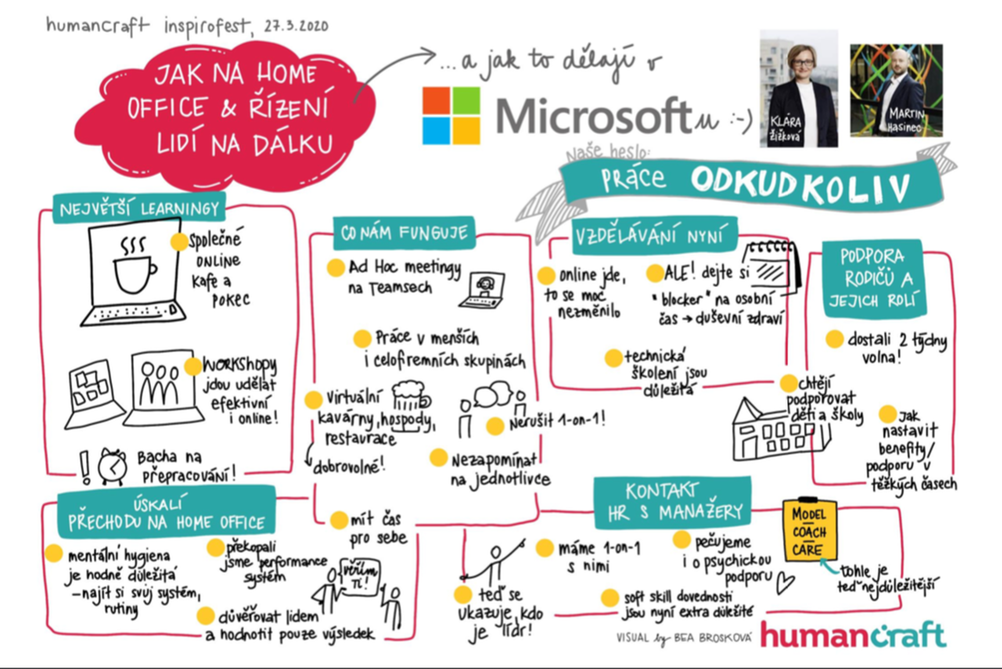 humancraft inspirofest, 27.3.2020
JAK NA HOME
OFFICE & ŘÍZENÍ
LIDÍ NA DÁLKU
...a jak to dělají v
Microsoftu :-)
KLÁRA
ŽIŽKOVÁ
MARTIN
Hasinec
Naše heslo:
PRÁCE ODKUDKOLIV
NEJVĚTŠÍ LEARNINGY
SPOLEČNÉ
ONLINE
Kafe a
POKEC
WORKSHOPY
jdou udělat
efektivní
i online!
Bacha na
přepracování!
CO NÁM FUNGUJE
Ad Hoc meetingy
na Teamsech
Práce v menších
i celofiremních skupinách
Virtuální
kavárny, hospody,
restaurace
dobrovolné!
Nerušit 1-on-1!
Nezapomínat
na jednotlivce
mít čas
pro sebe
VZDĚLÁVÁNÍ NYNÍ
online jde,
to se moc
nezměnilo
ALE! dejte si
"blocker" na osobní
čas → duševní zdraví
technická
školení jsou
důležitá
PODPORA
RODIČŮ A
JEJICH ROLÍ
dostali 2 týdny
volna!
chtějí
podporovat
děti a školy
Jak
nastavit
benefity/
podporu v
těžkých časech
ÚSKALÍ
PŘECHODU NA HOME OFFICE
mentální hygiena
je hodně důležitá
- najít si svůj systém,
rutiny
překopali
jsme performance
systém
důvěřovat lidem
a hodnotit pouze výsledek
věřím
Ti!
KONTAKT
HR S MANAŽERY
teď se
ukazuje, kdo
je "lídr!
máme 1-on-1
s nimi
pečujeme
i o psychickou
podporu
soft skill dovednosti
jsou nyní extra důležité
MODEL
COACH
CARE
tohle je
teď nejdůležitější
VISUAL by BEA BROSKOVÁ
humancraft